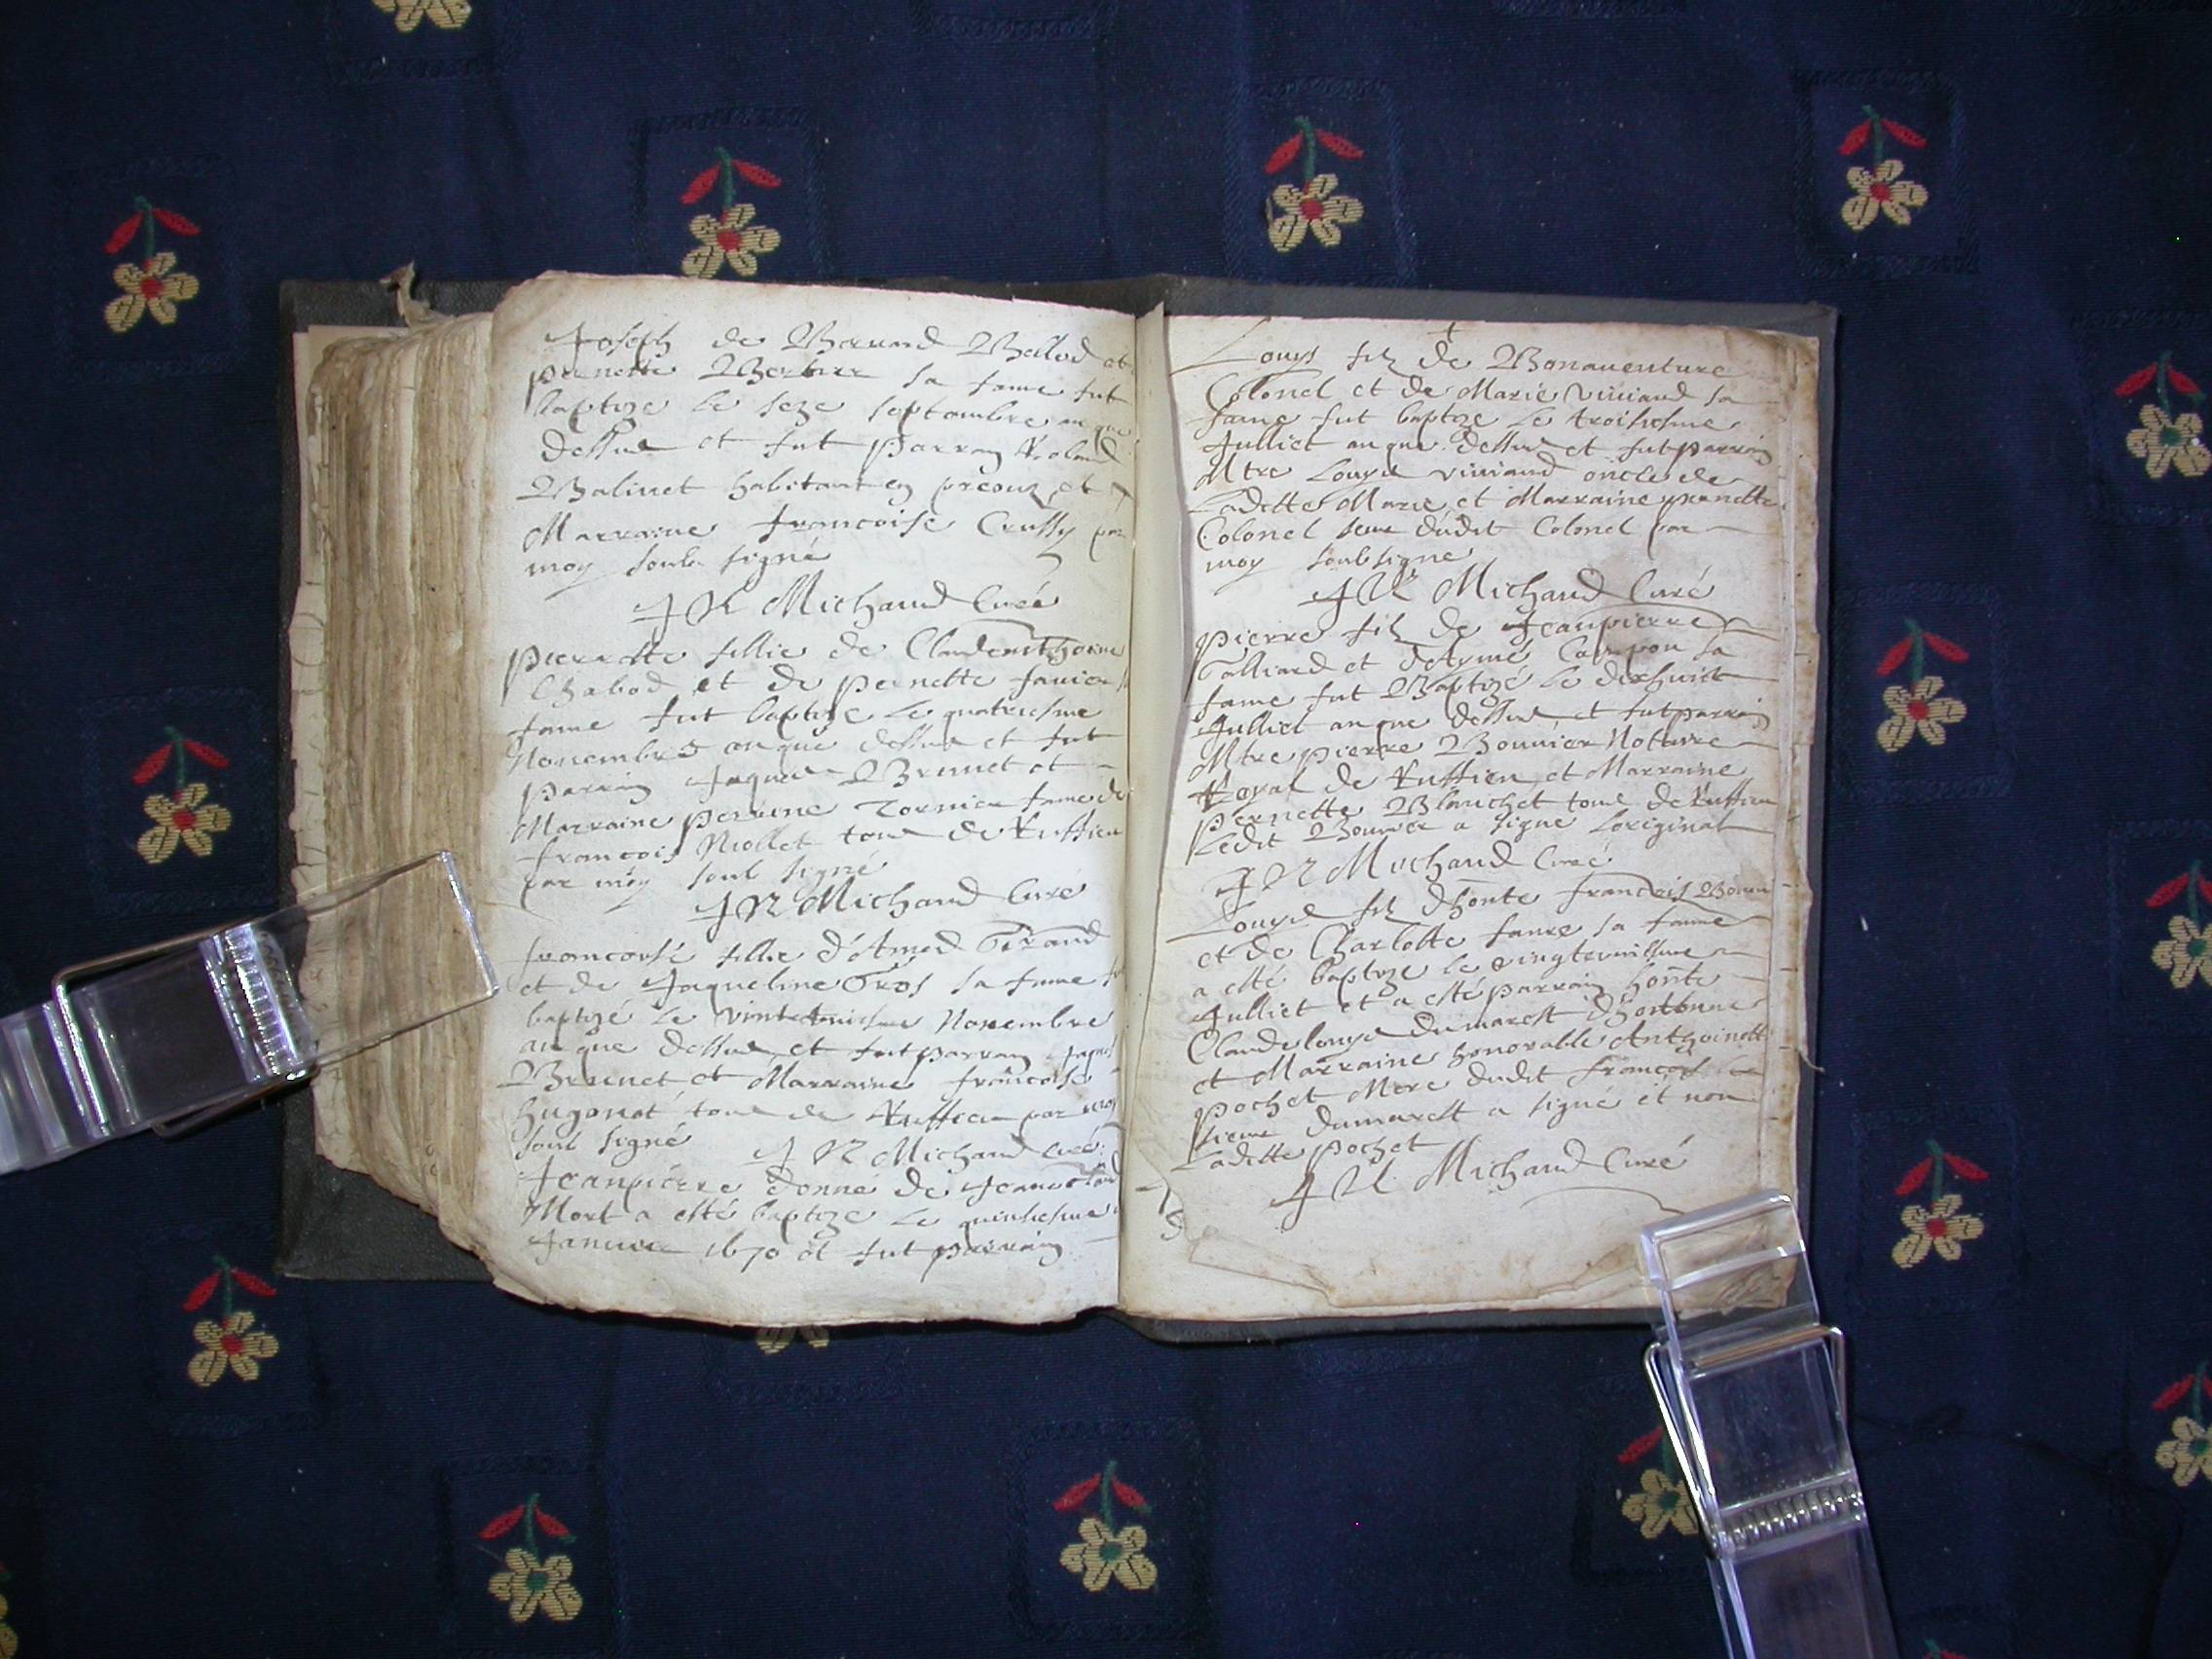 Joseph de Bernard Ballod et
pernette Berbier sa fame fut
baptize le seze septambre an que
dessus et fut parrain Roland
Balinet habitant en preouz et
Marraine francoise Crussy par
moy soub signé
J R Michaud Curé
pierrette fillie de Claudeanthoine
Chabod et de pernette Janier
fame fut baptize le quatriesme
Novembre an que dessus et fut
parrain Jaques Brunet et
Marraine pervine Tornier fame de
francois Niollet tous de Ruffieu
par moy soub signé
J R Michaud Curé
francoise fillie d'Amed Girand
et de Jaqueline Gros sa fame
baptizé le vint Novembre
an que dessus et fut parrain Jaques
Brunet et Marraine francoise
hugonot tous de Ruffieu par moy
soub signé J R Michaud Curé
Jeanpierre donné de Jean
Mort a esté baptize le quinsiesme
Janvier 1670 et fut parrain
Louys filz de Bonaventure
Colonel et de Marie viviand sa
fame fut baptize le troisiesme
Julliet an que dessus et fut parrain
Mtre Louys viviand oncle de
Ladette Marie et Marraine pernette
Colonel seur dudit Colonel par
moy soub signe
J R Michaud Curé
pierre filz de Jeanpierre
Galliard et d'Aymé Carrpon sa
fame fut Baptizé le dixhuict
Julliet an que dessus et fut parrain
Mtre pierre Bouvier Nottaire
Royal de Ruffieu et Marraine
Pernette Blanchet tous de Ruffieu
Ledit Bouvier a signe Loriginal
J R Michaud Curé
Louys filz dhonte francois
et de Charlotte faure sa fame
a esté baptize le
Julliet et a esté parrain honte
Claudelouys dumarest dhostonne
et Marraine honorable Anthoinette
pochet Mere dudit francois le
sieur dumarest a signé et non
Ladette pochet
J R Michaud Curé